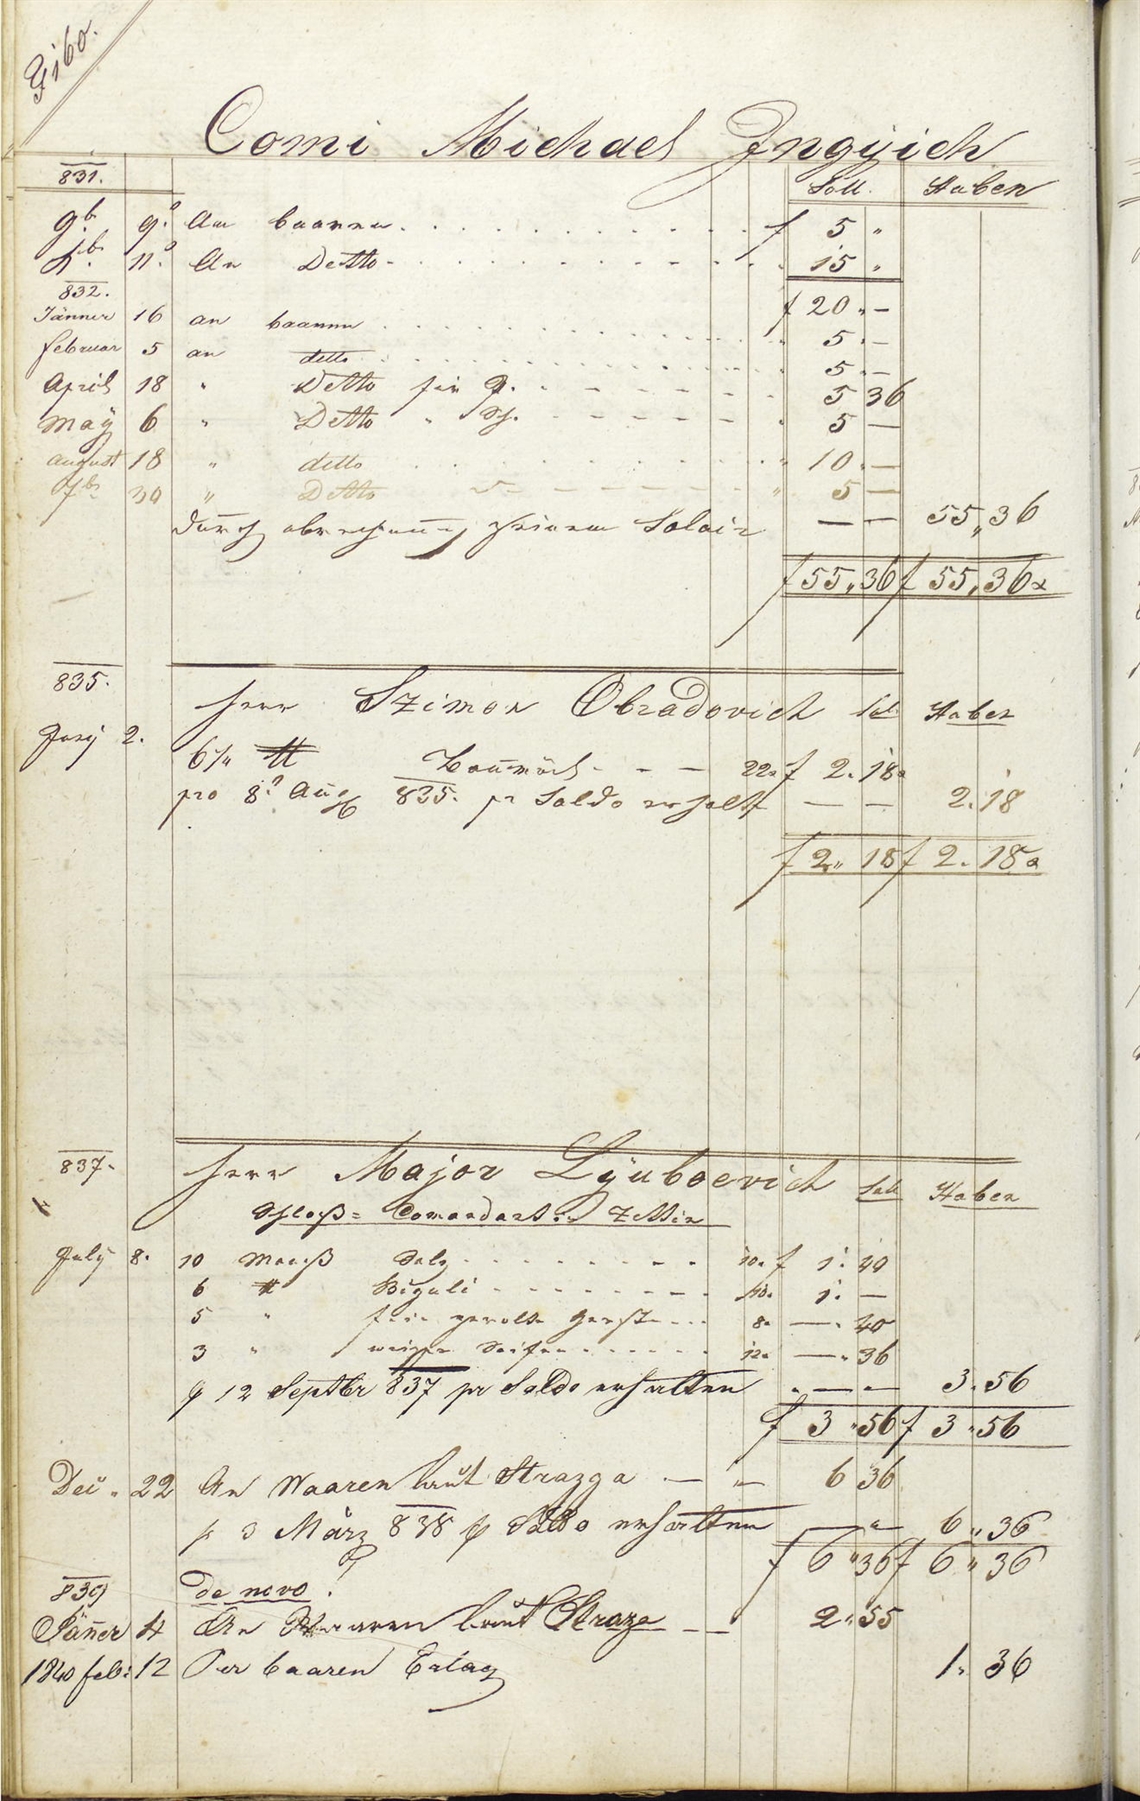 160.
Comi Michael Jngyich
831.
Soll. Haben
9b. 9. An baaren f 5 "
Xb. 11. An Detto 15 "
832.
f 20 " —
Jänner 16 an baaren 5 . —
februar 5 an detto 5 . —
April 18 " Detto für 5 36
Maÿ 6 " Detto " 5 —
august 18 " detto 10 . —
7b 30 " Detto 5 —
durch abrechnung seinem Salair — — 55 " 36
f 55 " 36 f 55 " 36 x
835.
Herr Szimon Obradovich Soll Haben
Junÿ 2. 6¼ ℔ Baumöhl 22 x f 2 . 18 x
pro 8. Aug 835. pr Saldo erhalt — — 2 . 18
f 2 " 18 f 2 . 18 x
837.
Herr Major Lÿuboevich Soll Haben
Schloß = Comandant in Zettin
Julÿ 8. 10 Maaß Salz 10 x f 1 . 40
6 ℔ Bigali 10 x 1 . —
5 " fein gerolte Gerste 8 x — . 40
3 " weisse Seifen 12 x — " 36
p 12 Septbr 837 pr Saldo erhalten " — — 3 . 56
f 3 " 56 f 3 " 56
Dec. 22 An Waaren laut Strazza — " — 6 36
p 3 März 838 p Saldo erhalten — " — 6 " 36
f 6 " 36 f 6 " 36
839 de novo !
Jänner 4 An Waaren laut Straza — — 2 " 55
1840 feb: 12 Per baaren Erlag 1 " 36